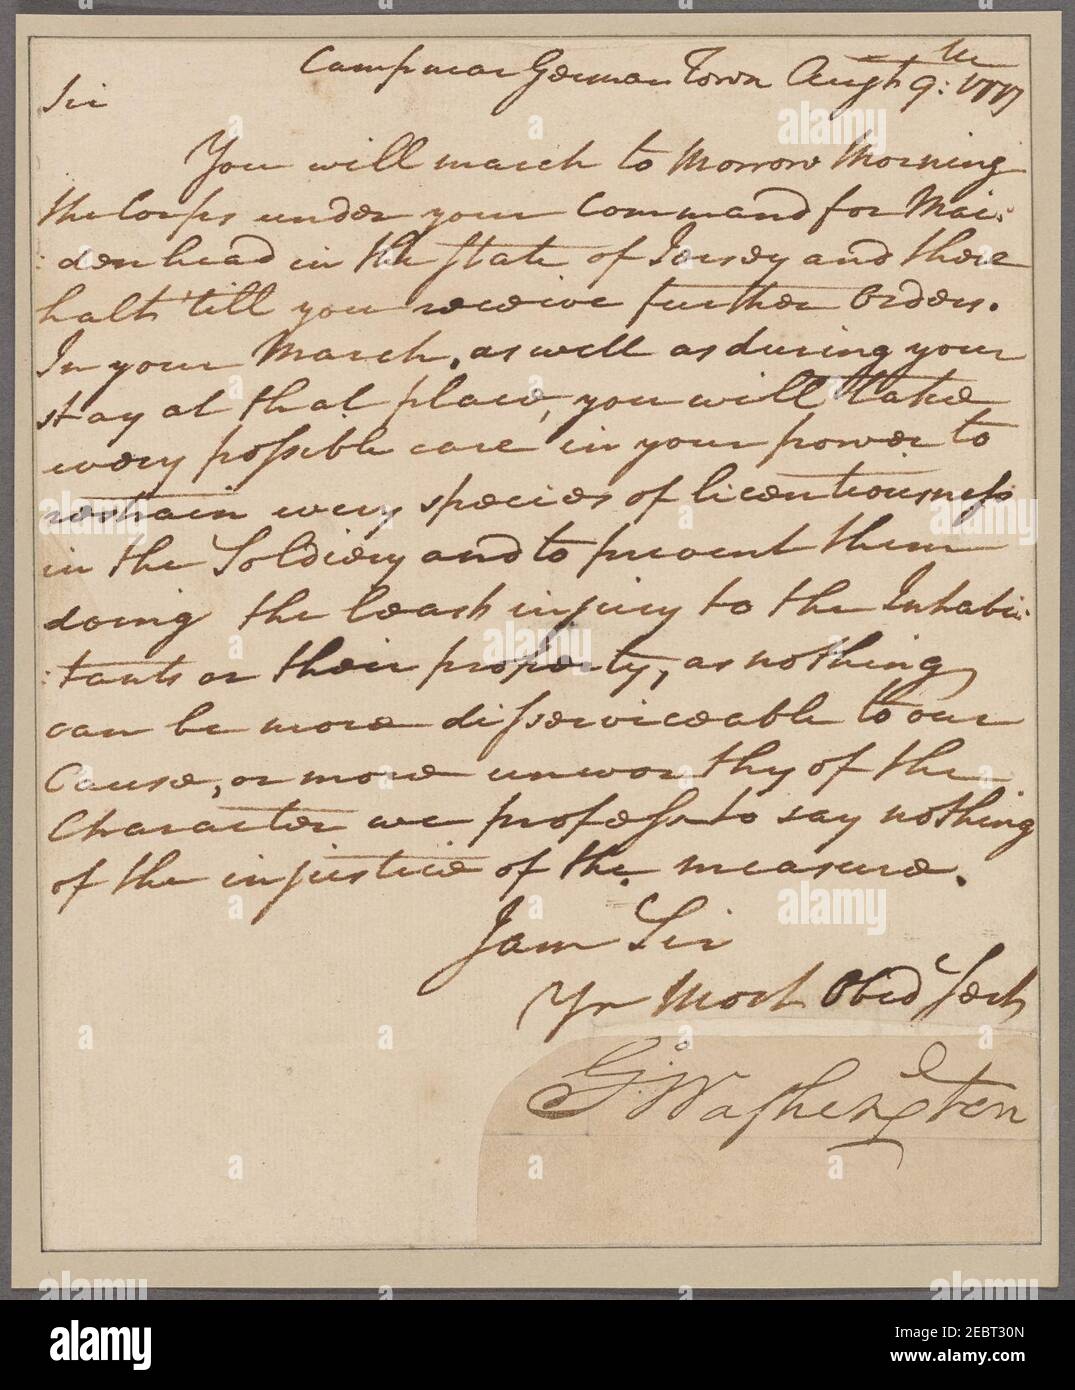 Camp near German Town Augt 9th: 1777
Sir
You will march to Morrow Morning
the Corps under your Command for Mai:
:denhead in the State of Jersey and there
halt 'till you receive further Orders.
In your March, as well as during your
stay at that place, you will take
every possible care in your power to
restrain every species of licentiousness
in the Soldiery and to prevent them
doing the least injury to the Inhabi:
:tants or their property, as nothing
can be more disserviceable to our
Cause, or more unworthy of the
Character we profess to say nothing
of the injustice of the measure.
I am Sir
Yr Most Obed Sert
G:Washington
alamy
Image ID: 2EBT30N
www.alamy.com